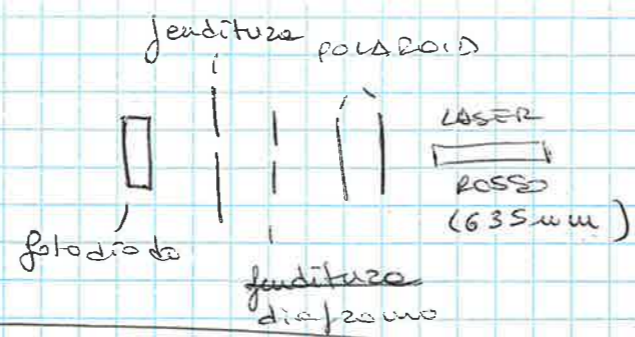 fenditura
POLAROID
LASER
ROSSO
(635 nm)
fotodiodo
fenditura
diaframma